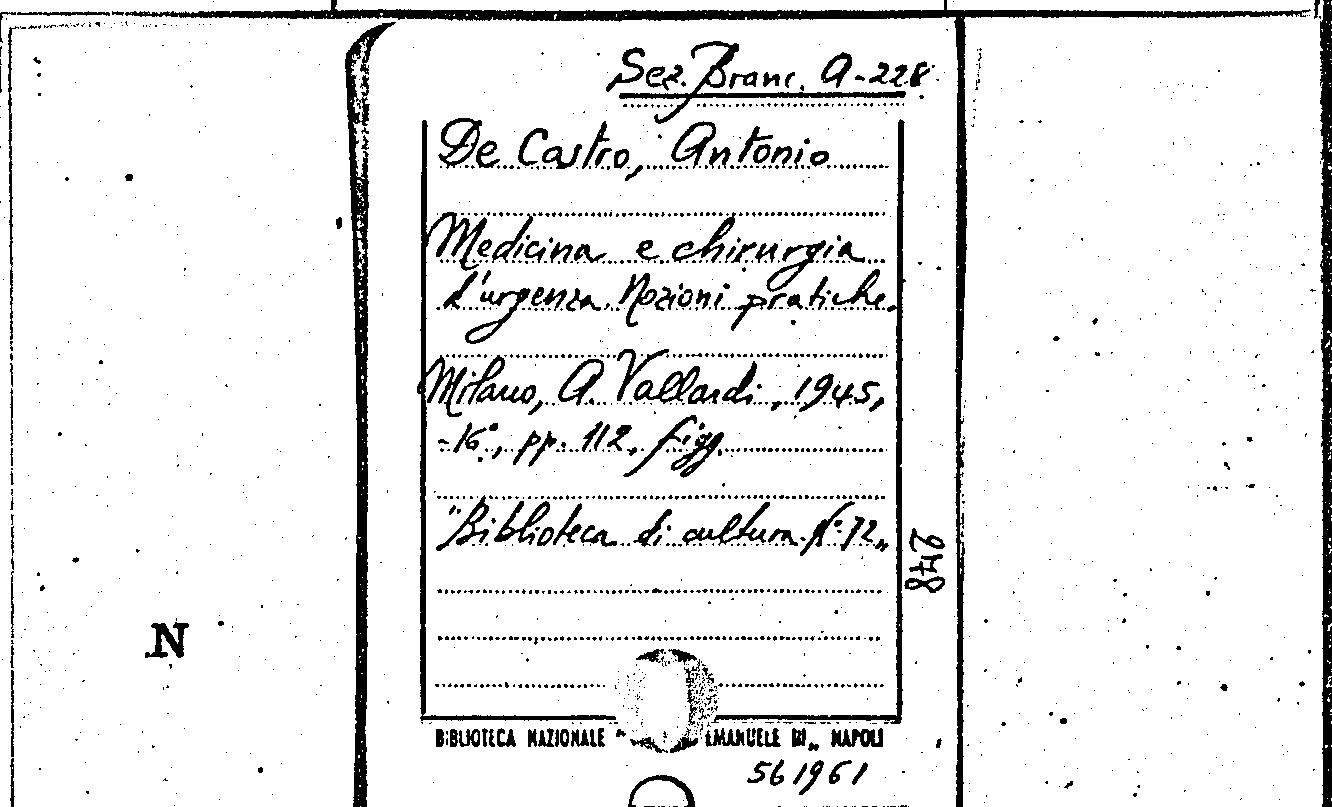 Sez. Branc. A-228
De Castro, Antonio
Medicina e chirurgia
d'urgenza. Nozioni pratiche.
Milano, A. Vallardi, 1945,
-16°, pp. 112, figg.
"Biblioteca di cultura. N° 72„
248
N
BIBLIOTECA NAZIONALE " EMANUELE III„ NAPOLI
561961